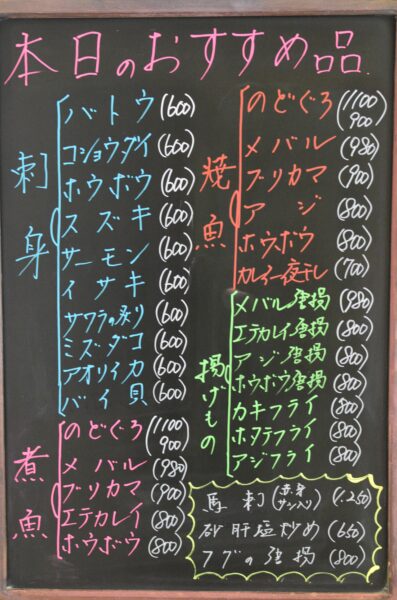 本日のおすすめ品
刺身
バトウ (600)
コショウダイ (600)
ホウボウ (600)
スズキ (600)
サーモン (600)
イサキ (600)
サワラの炙り (600)
ミズダコ (600)
アオリイカ (600)
バイ貝 (600)
煮魚
のどぐろ (1100 900)
メバル (980)
ブリカマ (900)
エテカレイ (800)
ホウボウ (800)
焼魚
のどぐろ (1100 900)
メバル (980)
ブリカマ (900)
アジ (800)
ホウボウ (800)
カレイ一夜干し (700)
揚げもの
メバル唐揚 (980)
エテカレイ唐揚 (800)
アジ唐揚 (800)
ホウボウ唐揚 (800)
カキフライ (800)
ホタテフライ (800)
アジフライ (800)
馬刺 (赤身 サシ入り) (1.250)
砂肝塩炒め (650)
フグの唐揚 (800)